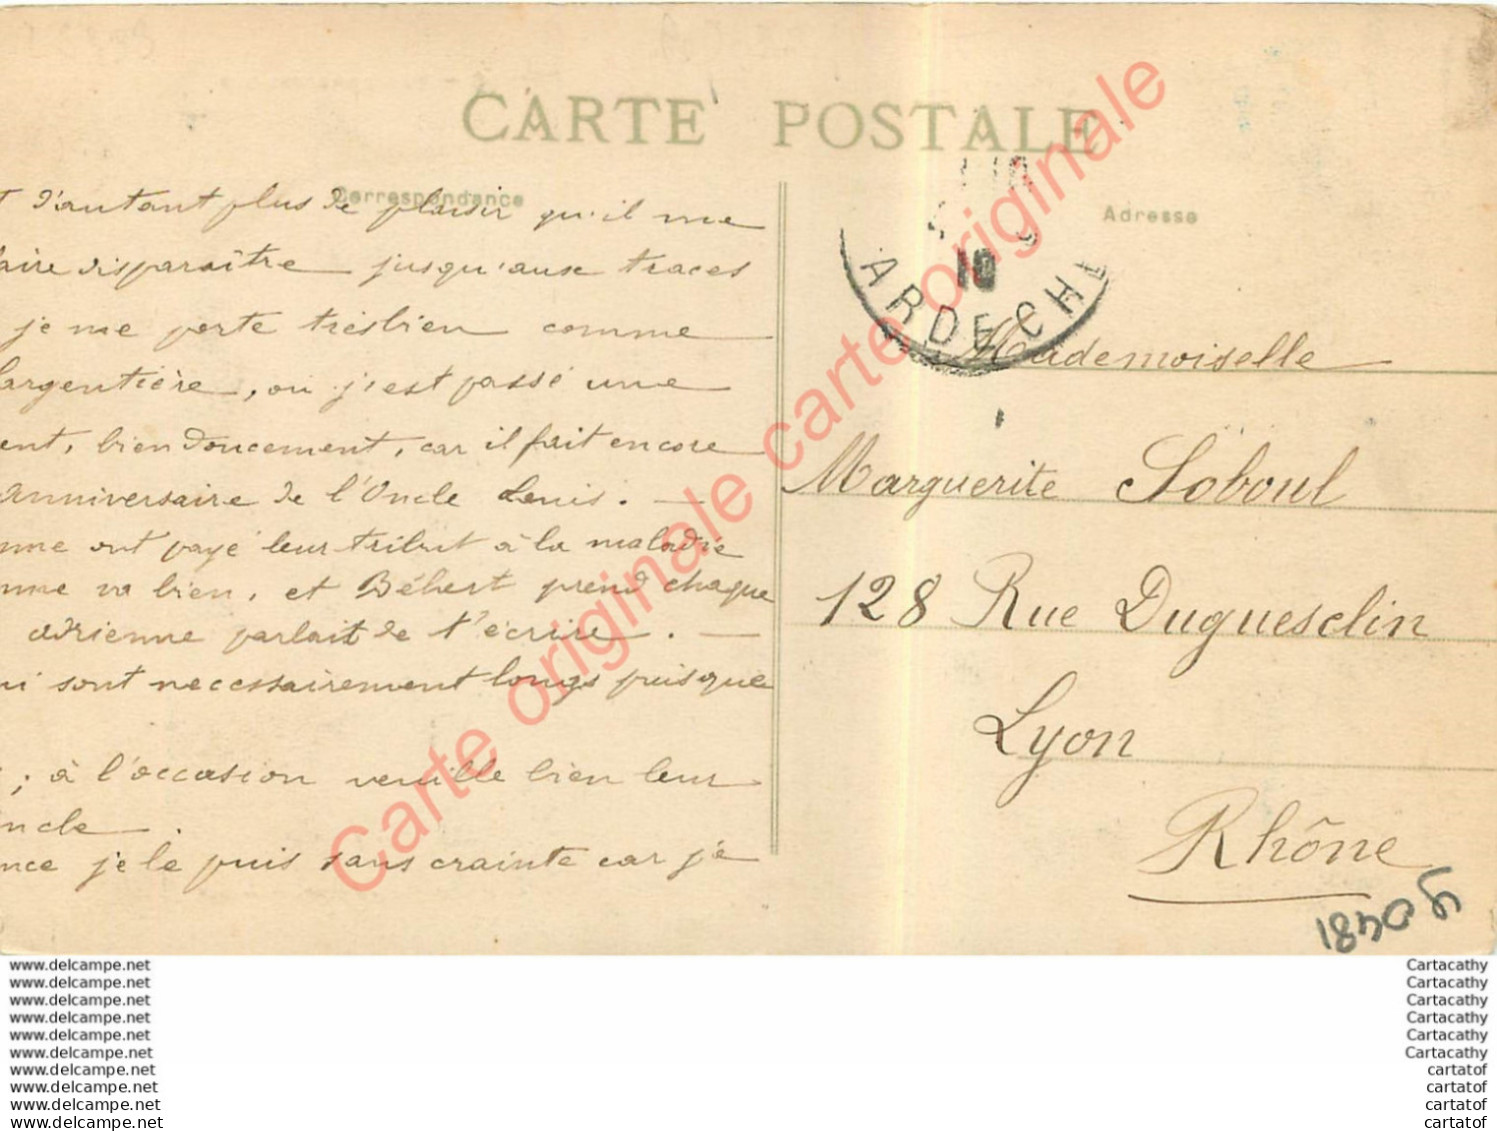 CARTE POSTALE
Correspondance
Adresse
d'autant plus de plaisir qu'il me
aire disparaître jusqu'aux traces
je me porte très bien comme
largentière, où j'est passé une
ent, bien doucement, car il fait encore
anniversaire de l'Oncle Louis. —
nne ont payé leur tribut à la maladie
nne va bien, et Bébert prend chaque
adrienne parlait de t'écrire. —
ui sont necessairement longs puisque
; à l'occasion veuille bien leur
ncle.
nce je le puis sans crainte car je
10
ARDECHE
Mademoiselle
Marguerite Soboul
128 Rue Duguesclin
Lyon
Rhône
Carte originale carte originale
www.delcampe.net
www.delcampe.net
www.delcampe.net
www.delcampe.net
www.delcampe.net
www.delcampe.net
www.delcampe.net
www.delcampe.net
www.delcampe.net
www.delcampe.net
Cartacathy
Cartacathy
Cartacathy
Cartacathy
Cartacathy
Cartacathy
cartatof
cartatof
cartatof
cartatof